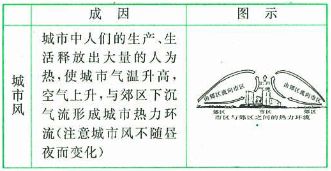 成因
图示
城市风
城市中人们的生产、生
活释放出大量的人为
热,使城市气温升高,
空气上升,与郊区下沉
气流形成城市热力环
流(注意城市风不随昼
夜而变化)
由郊区流向市区
由郊区流向市区
郊区 市区 郊区
市区与郊区之间的热力环流